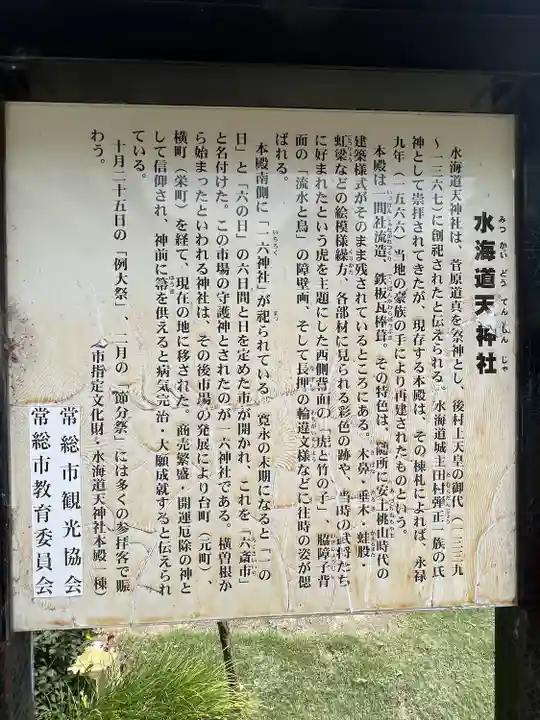 水海道天神社
みつかいどうてんじんじゃ
水海道天神社は、菅原道真を祭神とし、後村上天皇の御代（一三三九
～一三六七）に創祀されたと伝えられる。水海道城主田村弾正一族の氏
神として崇拝されてきたが、現存する本殿は、その棟札によれば、永禄
九年（一五六六）当地の豪族の手により再建されたものという。
本殿は一間社流造、鉄板瓦棒葺。その特色は、随所に安土桃山時代の
建築様式がそのまま残されているところにある。木鼻・垂木・蛙股・
虹梁などの絵模様繰方、各部材に見られる彩色の跡や、当時の武将たち
に好まれたという虎を主題にした西側背面の「虎と竹の子」、脇障子背
面の「流水と鳥」の障壁画、そして長押の輪違文様などに往時の姿が偲
ばれる。
本殿南側に「一六神社」が祀られている。寛永の末期になると「一の
日」と「六の日」の六日間と日を定めた市が開かれ、これを「六斎市」
と名付けた。この市場の守護神とされたのが一六神社である。横曽根か
ら始まったといわれる神社は、その後市場の発展により台町（元町）
横町（栄町）を経て、現在の地に移された。商売繁盛・開運厄除の神と
して信仰され、神前に箒を供えると病気完治・大願成就すると伝えられ
ている。
十月二十五日の「例大祭」、二月の「節分祭」には多くの参拝客で賑
わう。
（市指定文化財・水海道天神社本殿一棟）
常総市観光協会
常総市教育委員会